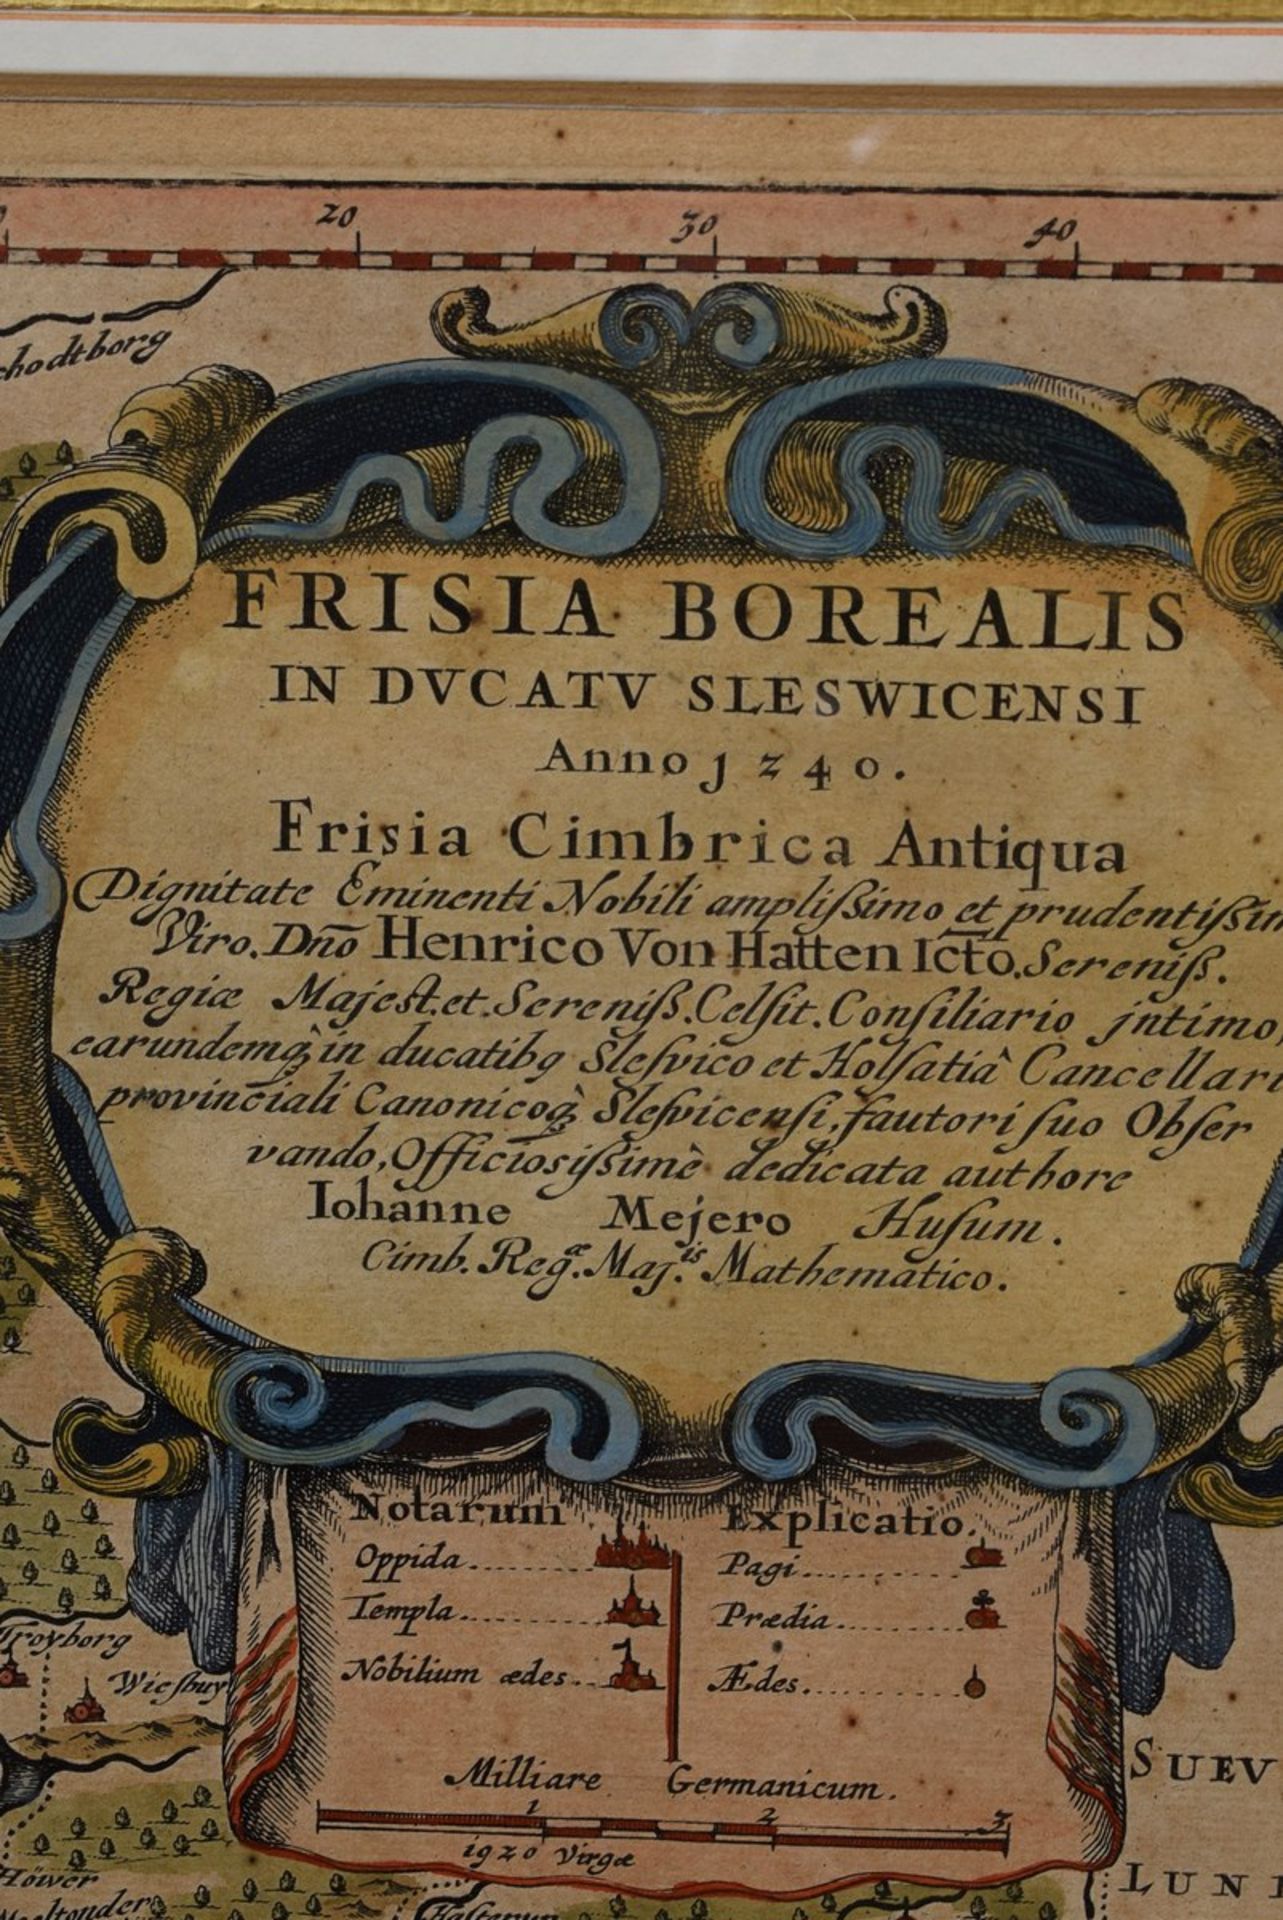 20 30 40
FRISIA BOREALIS
IN DVCATV SLESWICENSI
Anno 1240.
Frisia Cimbrica Antiqua
Dignitate Eminenti Nobili ampliſsimo et prudentiſsim
Viro. Dn̄o Henrico Von Hatten Ic̄to. Sereniſs.
Regiæ Majest. et. Sereniſs. Celſit. Conſiliario jntimo,
earundemq̀ in ducatibq Sleſvico et Holſatiâ Cancellari
provinc̄iali Canonicoq̀ Sleſvicenſi, fautori ſuo Obſer
vando, Officiosiſsimè dedicata authore
Iohanne Mejero Huſum.
Cimb. Reg.æ Maj.is Mathematico.
Notarum Explicatio.
Oppida Pagi
Templa Prædia
Nobilium ædes Ædes
Milliare Germanicum.
1 2 3
1920 Virgæ
Troyborg
Wieſbuy
SUEV
Höwer
LUN